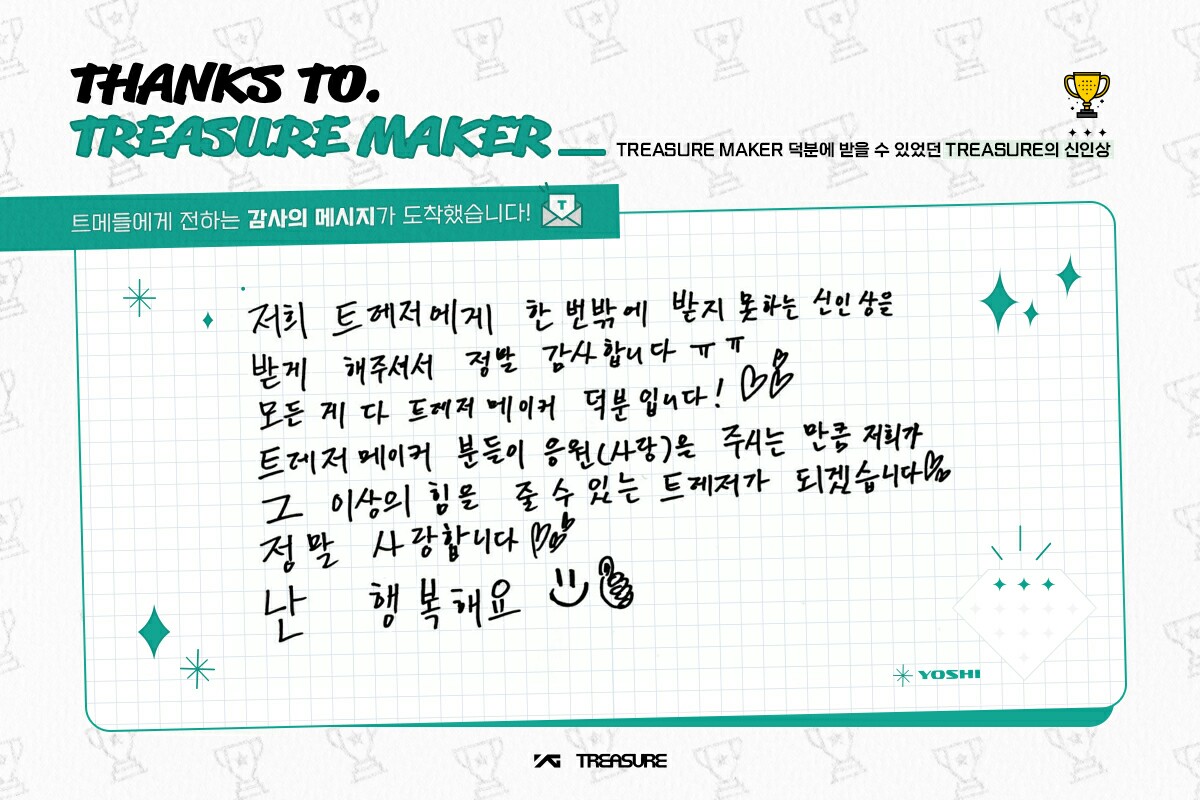 THANKS TO.
TREASURE MAKER
TREASURE MAKER 덕분에 받을 수 있었던 TREASURE의 신인상
트메들에게 전하는 감사의 메시지가 도착했습니다!
T
저희 트레저에게 한 번밖에 받지 못하는 신인상을
받게 해주셔서 정말 감사합니다 ㅠㅠ
모든 게 다 트레저 메이커 덕분입니다!
트레저 메이커 분들이 응원(사랑)을 주시는 만큼 저희가
그 이상의 힘을 줄 수 있는 트레저가 되겠습니다
정말 사랑합니다
난 행복해요
YOSHI
YG TREASURE